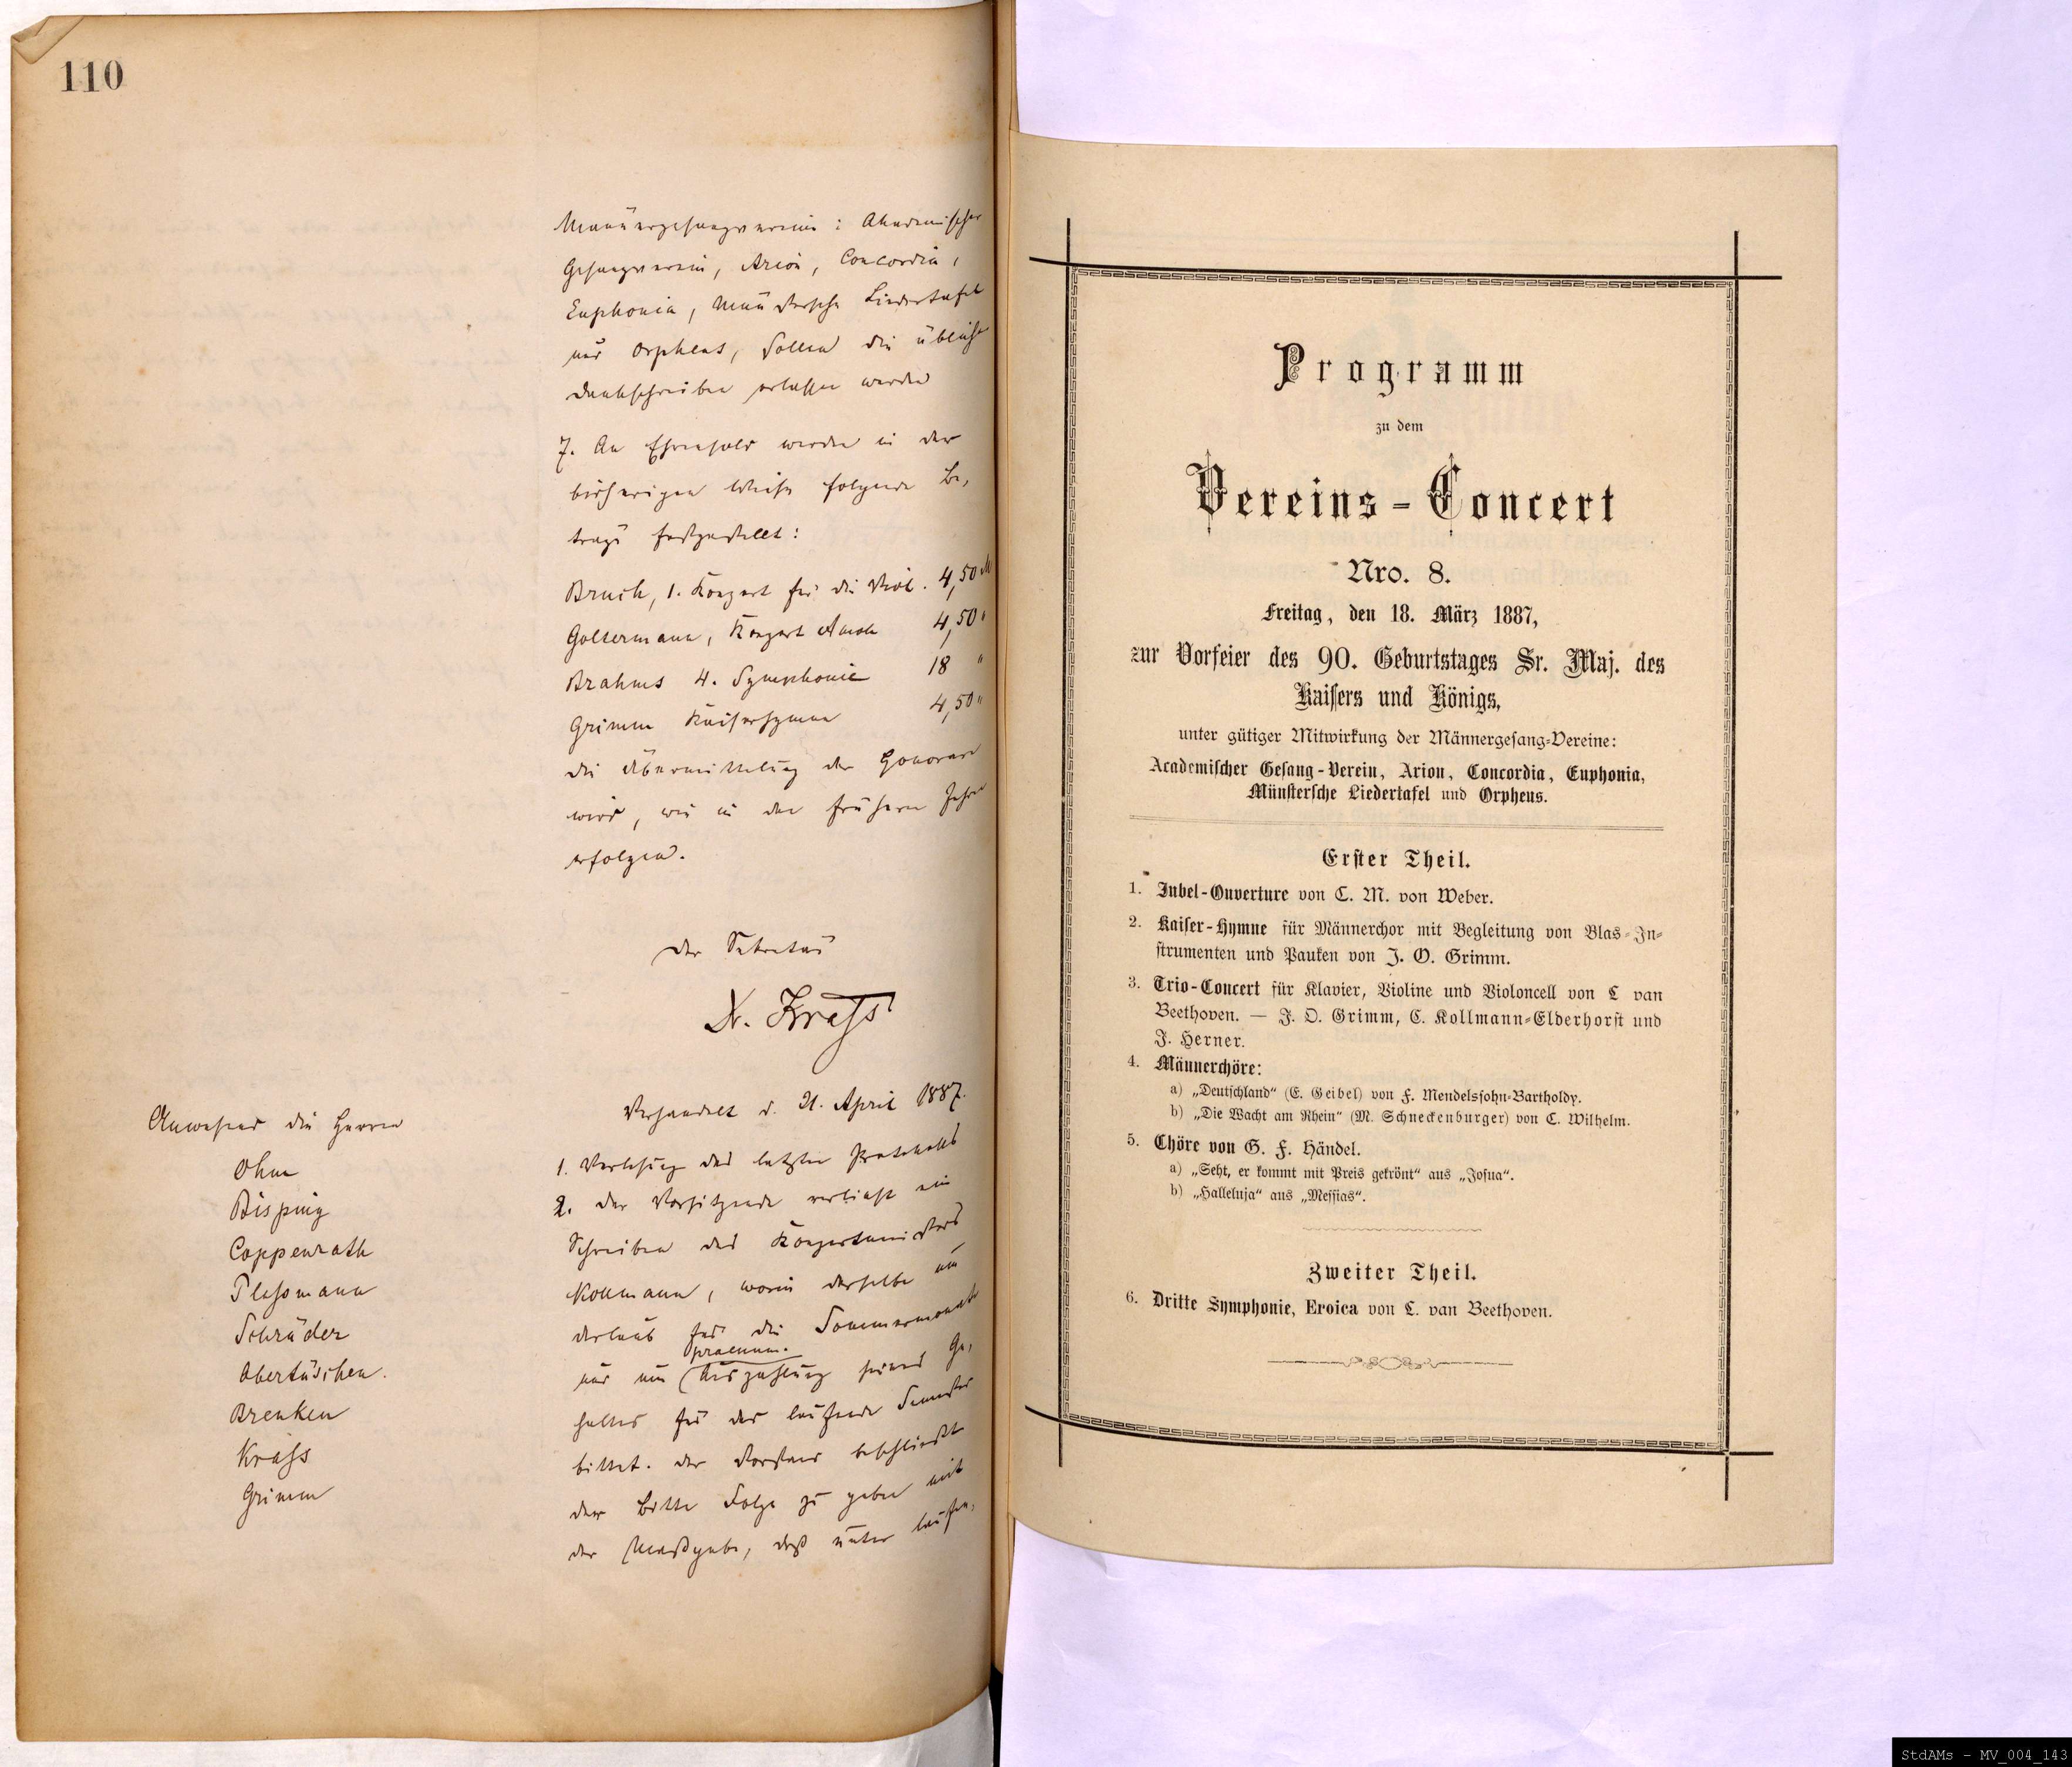 110
Männergesangvereine: Akademischer
Gesangverein, Arion, Concordia,
Euphonia, Münstersche Liedertafel
und Orpheus, sollen die übliche
Dankschreiben erlassen werden
7. An Ehrensold werden in der
bisherigen Weise folgende Be-
träge festgestellt:
Bruch, 1. Konzert für die Viol. 4,50 M
Goltermann, Konzert Amoll 4,50 "
Brahms 4. Symphonie 18 "
Grimm Kaiserhymne 4,50 "
die Übermittelung der Honorare
wird, wie in den frühern Jahren
erfolgen.
Der Sekretär
Dr. Krass
Anwesend die Herren
Ohm
Bisping
Coppenrath
Plassmann
Schräder
Obertüschen.
Brenken
Krass
Grimm
Verhandelt d. 21. April 1887.
1. Verlesung des letzten Protokolls
2. Der Vorsitzende verliest ein
Schreiben des Konzertmeisters
Kollmann, worin derselbe um
Urlaub für die Sommermonate
praenum.
und um Auszahlung seines Ge-
haltes für das laufende Semester
bittet. Der Vorstand beschließt
der Bitte Folge zu geben mit
der Maßgabe, daß unter laufen-
Programm
zu dem
Vereins-Concert
Nro. 8.
Freitag, den 18. März 1887,
zur Vorfeier des 90. Geburtstages Sr. Maj. des
Kaisers und Königs,
unter gütiger Mitwirkung der Männergesang-Vereine:
Academischer Gesang-Verein, Arion, Concordia, Euphonia,
Münstersche Liedertafel und Orpheus.
Erster Theil.
1. Jubel-Ouverture von C. M. von Weber.
2. Kaiser-Hymne für Männerchor mit Begleitung von Blas-In-
strumenten und Pauken von J. O. Grimm.
3. Trio-Concert für Klavier, Violine und Violoncell von L van
Beethoven. — J. O. Grimm, C. Kollmann-Elderhorst und
J. Herner.
4. Männerchöre:
a) „Deutschland“ (E. Geibel) von F. Mendelssohn-Bartholdy.
b) „Die Wacht am Rhein“ (M. Schneckenburger) von C. Wilhelm.
5. Chöre von G. F. Händel.
a) „Seht, er kommt mit Preis gekrönt“ aus „Josua“.
b) „Halleluja“ aus „Messias“.
Zweiter Theil.
6. Dritte Symphonie, Eroica von L. van Beethoven.
StdAMs - MV_004_143